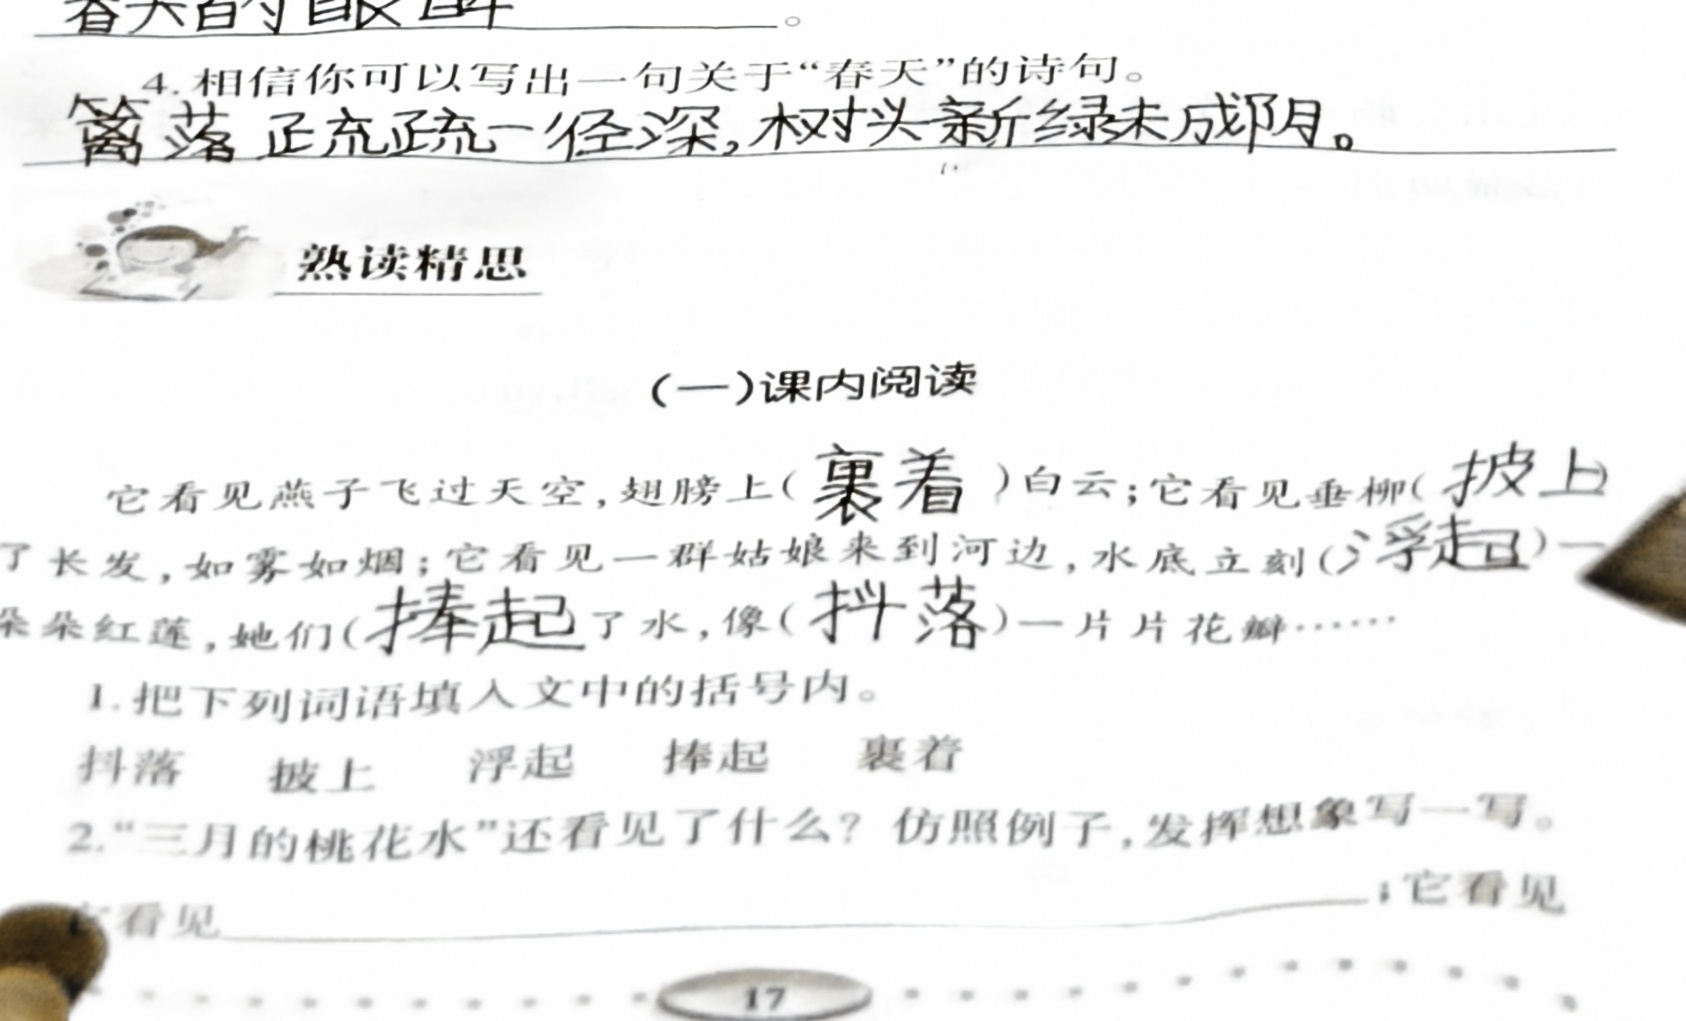 4.相信你可以写出一句关于“春天”的诗句。
篱落疏疏一径深,树头新绿未成阴。
熟读精思
(一)课内阅读
它看见燕子飞过天空,翅膀上(裹着)白云;它看见垂柳(披上)
了长发,如雾如烟;它看见一群姑娘来到河边,水底立刻(浮起)一
朵朵红莲,她们(捧起)了水,像(抖落)一片片花瓣……
1.把下列词语填入文中的括号内。
抖落 披上 浮起 捧起 裹着
2.“三月的桃花水”还看见了什么?仿照例子,发挥想象写一写。
它看见 ;它看见
17